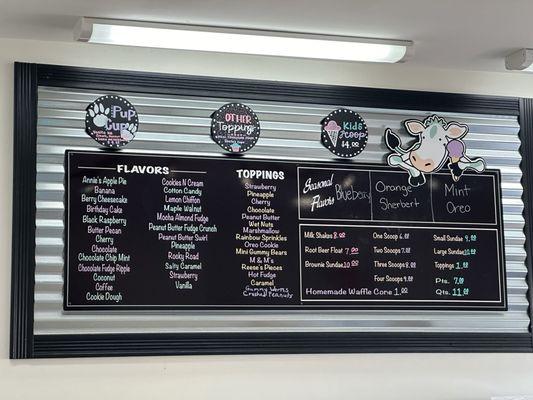 Pup Cup
OTHER
Toppings
Kids
Scoop
14.00
FLAVORS
Annie's Apple Pie
Banana
Berry Cheesecake
Birthday Cake
Black Raspberry
Butter Pecan
Cherry
Chocolate
Chocolate Chip Mint
Chocolate Fudge Ripple
Coconut
Coffee
Cookie Dough
Cookies N Cream
Cotton Candy
Lemon Chiffon
Maple Walnut
Mocha Almond Fudge
Peanut Butter Fudge Crunch
Peanut Butter Swirl
Pineapple
Rocky Road
Salty Caramel
Strawberry
Vanilla
TOPPINGS
Strawberry
Pineapple
Cherry
Chocolate
Peanut Butter
Wet Nuts
Marshmallow
Rainbow Sprinkles
Oreo Cookie
Mini Gummy Bears
M & M's
Reese's Pieces
Hot Fudge
Caramel
Gummy Worms
Crushed Peanuts
Seasonal
Flavors
Blueberry
Orange
Sherbert
Mint
Oreo
Milk Shakes 8.00
Root Beer Float 7.00
Brownie Sundae 10.00
One Scoop
Two Scoops
Three Scoops
Four Scoops
Small Sundae
Large Sundae
Toppings
Pts.
Qts. 11.00
Homemade Waffle Cone 1.00